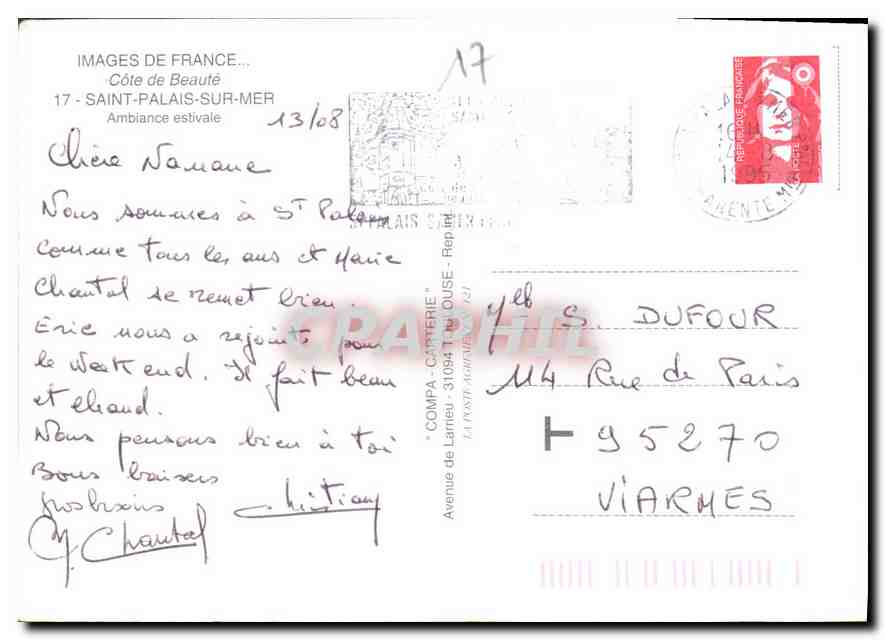 IMAGES DE FRANCE...
Côte de Beauté
17 - SAINT-PALAIS-SUR-MER
Ambiance estivale
17
13/08
Chère Namane
Nous sommes à St Palais
Comme tous les ans et Marie
Chantal se remet bien.
Eric nous a rejoints pour
le week end. Il fait beau
et chaud.
Nous pensons bien à toi
Bons baisers
Gros bisous Christian
M. Chantal
" COMPA - CARTERIE "
Avenue de Larrieu - 31094 TOULOUSE - Rep int.
LA POSTE AGRÉMENT N° 121
CPAPHIL
RÉPUBLIQUE FRANÇAISE
LA POSTE
ST PALAIS S/MER
95
Melle S. DUFOUR
114 Rue de Paris
95270
VIARMES